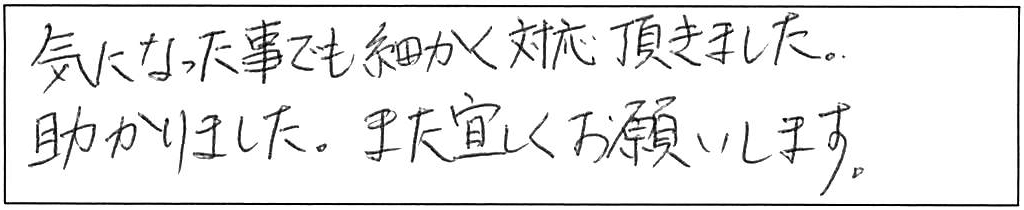 気になった事でも細かく対応頂きました。
助かりました。また宜しくお願いします。